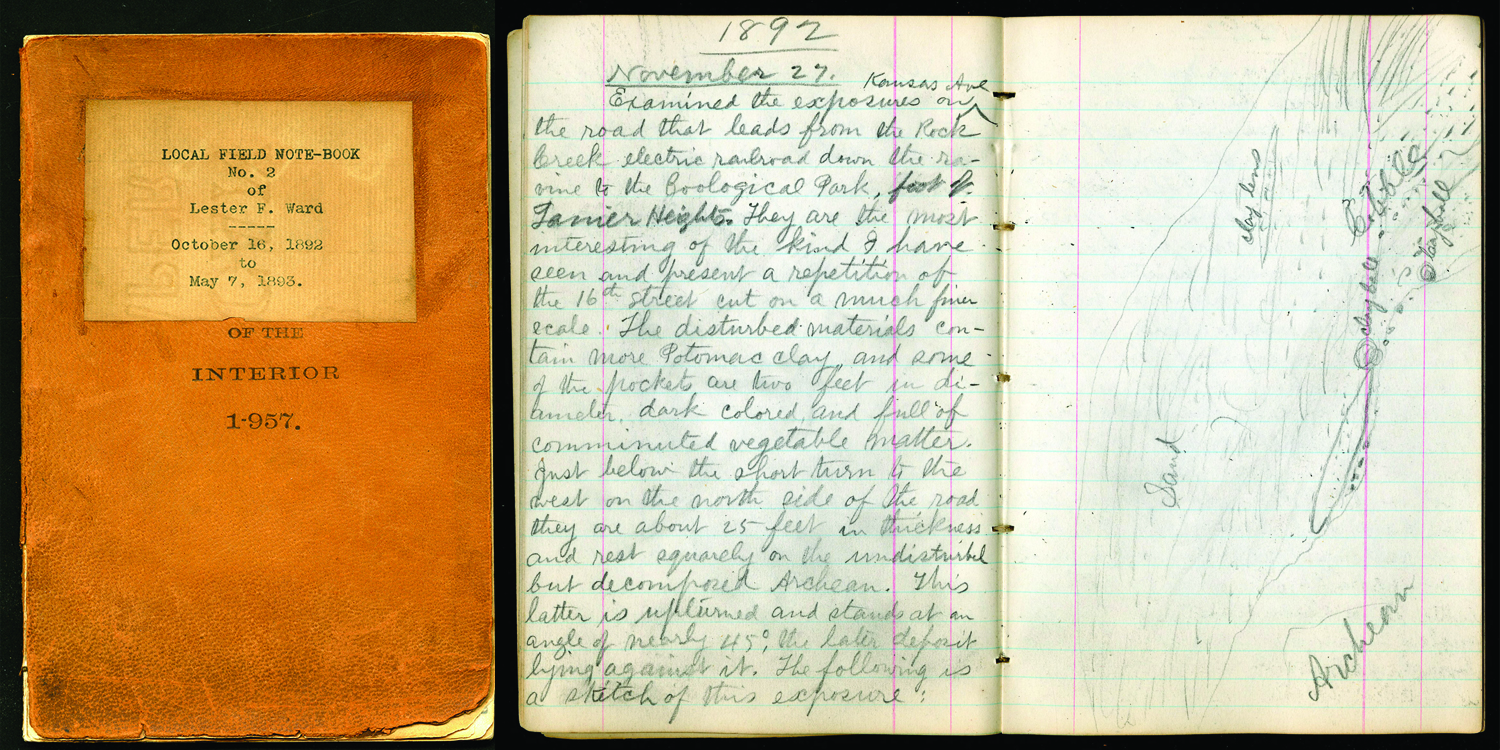 LOCAL FIELD NOTE-BOOK
No. 2
of
Lester F. Ward
October 16, 1892
to
May 7, 1893.
OF THE
INTERIOR
1-957.
1892
November 27.
Kansas Ave
Examined the exposures on
the road that leads from the Rock
Creek electric railroad down the ra-
vine to the Zoological Park, foot of
Lanier Heights. They are the most
interesting of the kind I have
seen and present a repetition of
the 16th Street cut on a much finer
scale. The disturbed materials con-
tain more Potomac clay, and some
of the pockets are two feet in di-
ameter, dark colored, and full of
comminuted vegetable matter.
Just below the short turn to the
west on the north side of the road
they are about 25 feet in thickness
and rest squarely on the undisturbed
but decomposed Archean. This
latter is upturned and stands at an
angle of nearly 45°, the later deposit
lying against it. The following is
a sketch of this exposure:
clay lens
Cobbles
Clay ball
Sand
Archean